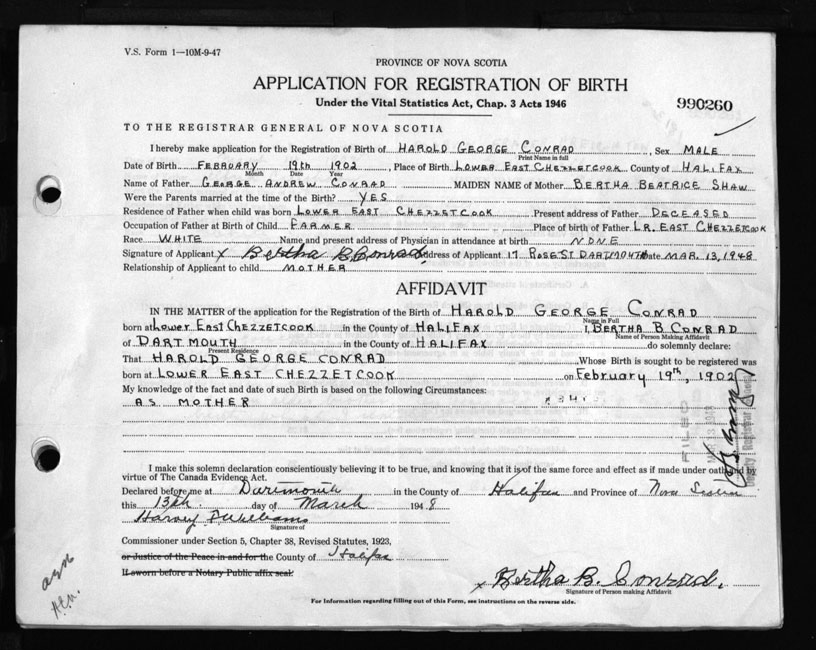 V.S. Form 1—10M-9-47
PROVINCE OF NOVA SCOTIA
APPLICATION FOR REGISTRATION OF BIRTH
Under the Vital Statistics Act, Chap. 3 Acts 1946
990260
TO THE REGISTRAR GENERAL OF NOVA SCOTIA
I hereby make application for the Registration of Birth of HAROLD GEORGE CONRAD, Sex MALE
Print Name in full
Date of Birth FEBRUARY 19th 1902, Place of Birth LOWER EAST CHEZZETCOOK, County of HALIFAX
Month Date Year
Name of Father GEORGE ANDREW CONRAD MAIDEN NAME of Mother BERTHA BEATRICE SHAW
Were the Parents married at the time of the Birth? YES
Residence of Father when child was born LOWER EAST CHEZZETCOOK Present address of Father DECEASED
Occupation of Father at Birth of Child FARMER Place of birth of Father LR. EAST CHEZZETCOOK
Race WHITE Name and present address of Physician in attendance at birth NONE
Signature of Applicant x Bertha B. Conrad Address of Applicant 17 ROSE ST DARTMOUTH Date MAR. 13, 1948
Relationship of Applicant to child MOTHER
AFFIDAVIT
IN THE MATTER of the application for the Registration of the Birth of HAROLD GEORGE CONRAD
Name in Full
born at LOWER EAST CHEZZETCOOK in the County of HALIFAX I, BERTHA B CONRAD
Name of Person making Affidavit
of DARTMOUTH in the County of HALIFAX do solemnly declare:
Present Residence
That HAROLD GEORGE CONRAD Whose Birth is sought to be registered was
born at LOWER EAST CHEZZETCOOK on February 19th, 1902
My knowledge of the fact and date of such Birth is based on the following Circumstances:
AS MOTHER
FILED
I make this solemn declaration conscientiously believing it to be true, and knowing that it is of the same force and effect as if made under oath and by
virtue of The Canada Evidence Act.
Declared before me at Dartmouth in the County of Halifax and Province of Nova Scotia
this 13th day of March 1948
Signature of
Commissioner under Section 5, Chapter 38, Revised Statutes, 1923,
or Justice of the Peace in and for the County of Halifax
If sworn before a Notary Public affix seal.
x Bertha B. Conrad.
Signature of Person making Affidavit
For Information regarding filling out of this Form, see instructions on the reverse side.